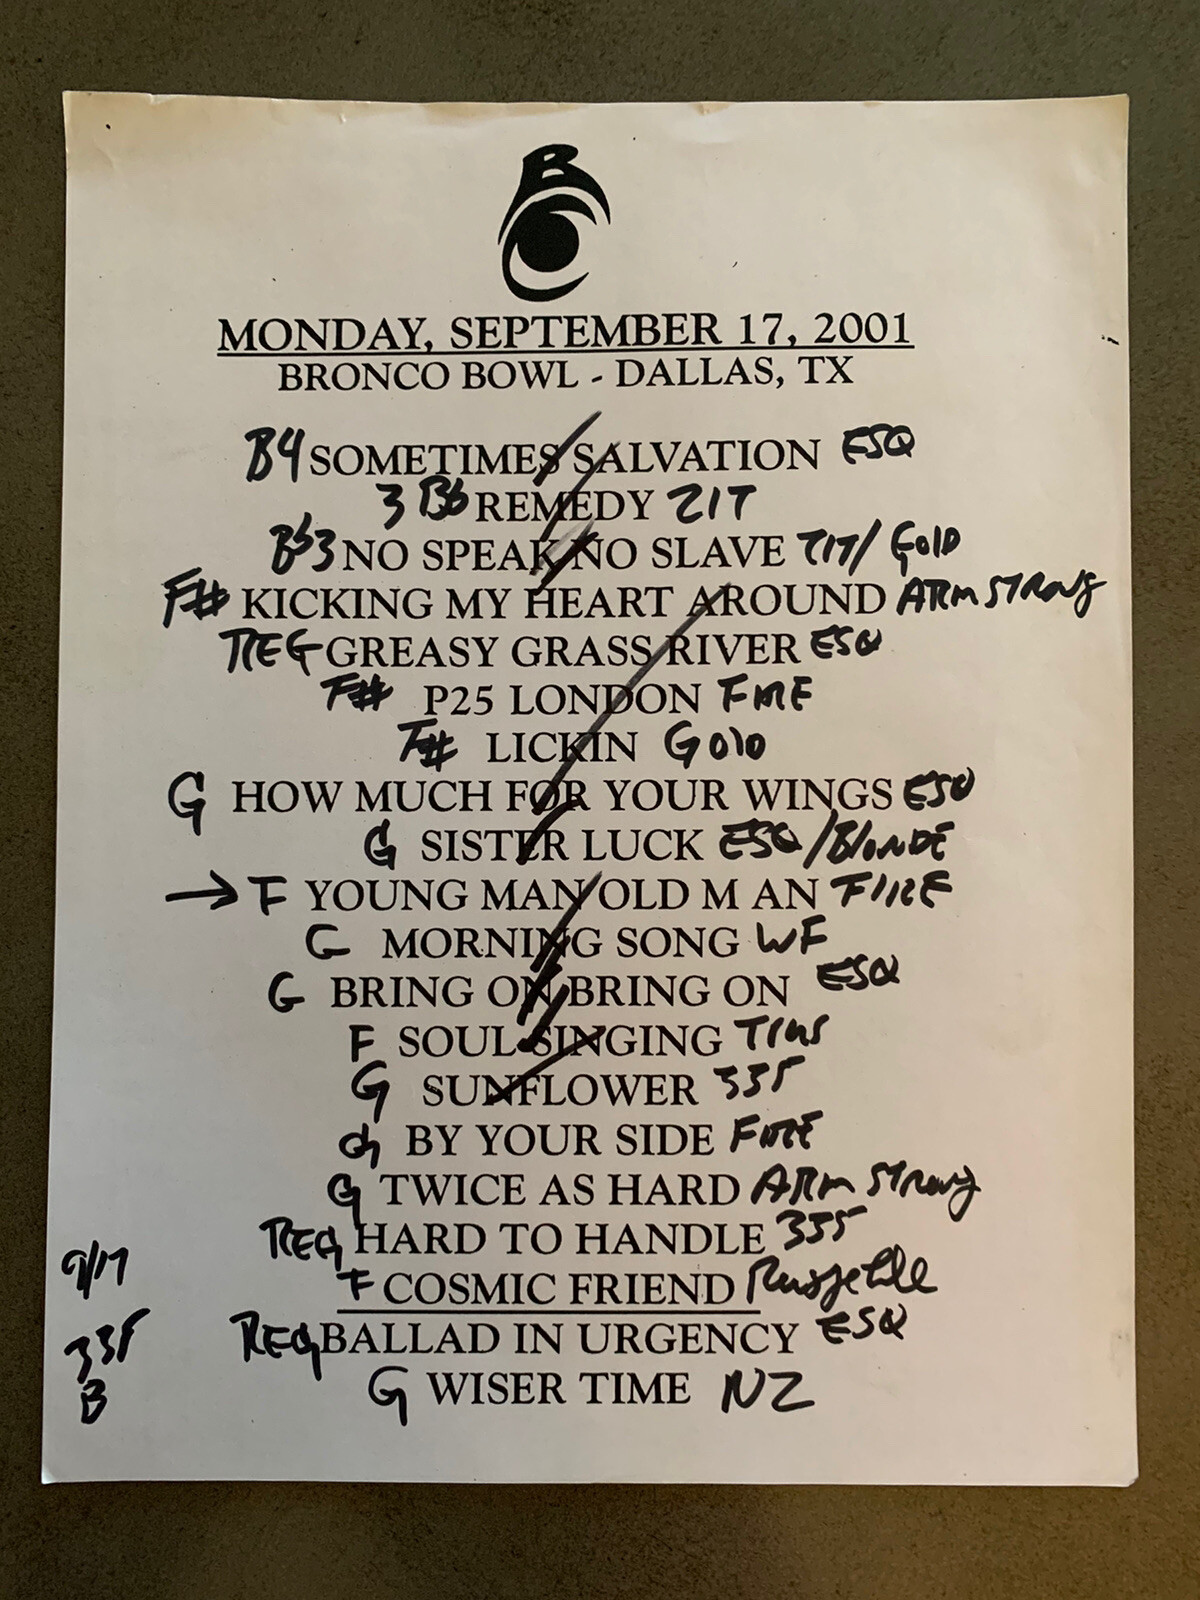 BC
MONDAY, SEPTEMBER 17, 2001
BRONCO BOWL - DALLAS, TX
B4 SOMETIMES SALVATION ESQ
3 Bb REMEDY ZIT
Bb3 NO SPEAK NO SLAVE ZIT/ GOLD
F# KICKING MY HEART AROUND ARMSTRONG
REG GREASY GRASS RIVER ESQ
F# P25 LONDON FIRE
F# LICKIN GOLD
G HOW MUCH FOR YOUR WINGS ESQ
G SISTER LUCK ESQ/BLONDE
→ F YOUNG MAN OLD M AN FIRE
G MORNING SONG WF
G BRING ON BRING ON ESQ
F SOUL SINGING
G SUNFLOWER 335
G BY YOUR SIDE FIRE
G TWICE AS HARD ARMSTRONG
REG HARD TO HANDLE 335
F COSMIC FRIEND
REG BALLAD IN URGENCY ESQ
G WISER TIME NZ
9/17
335
B